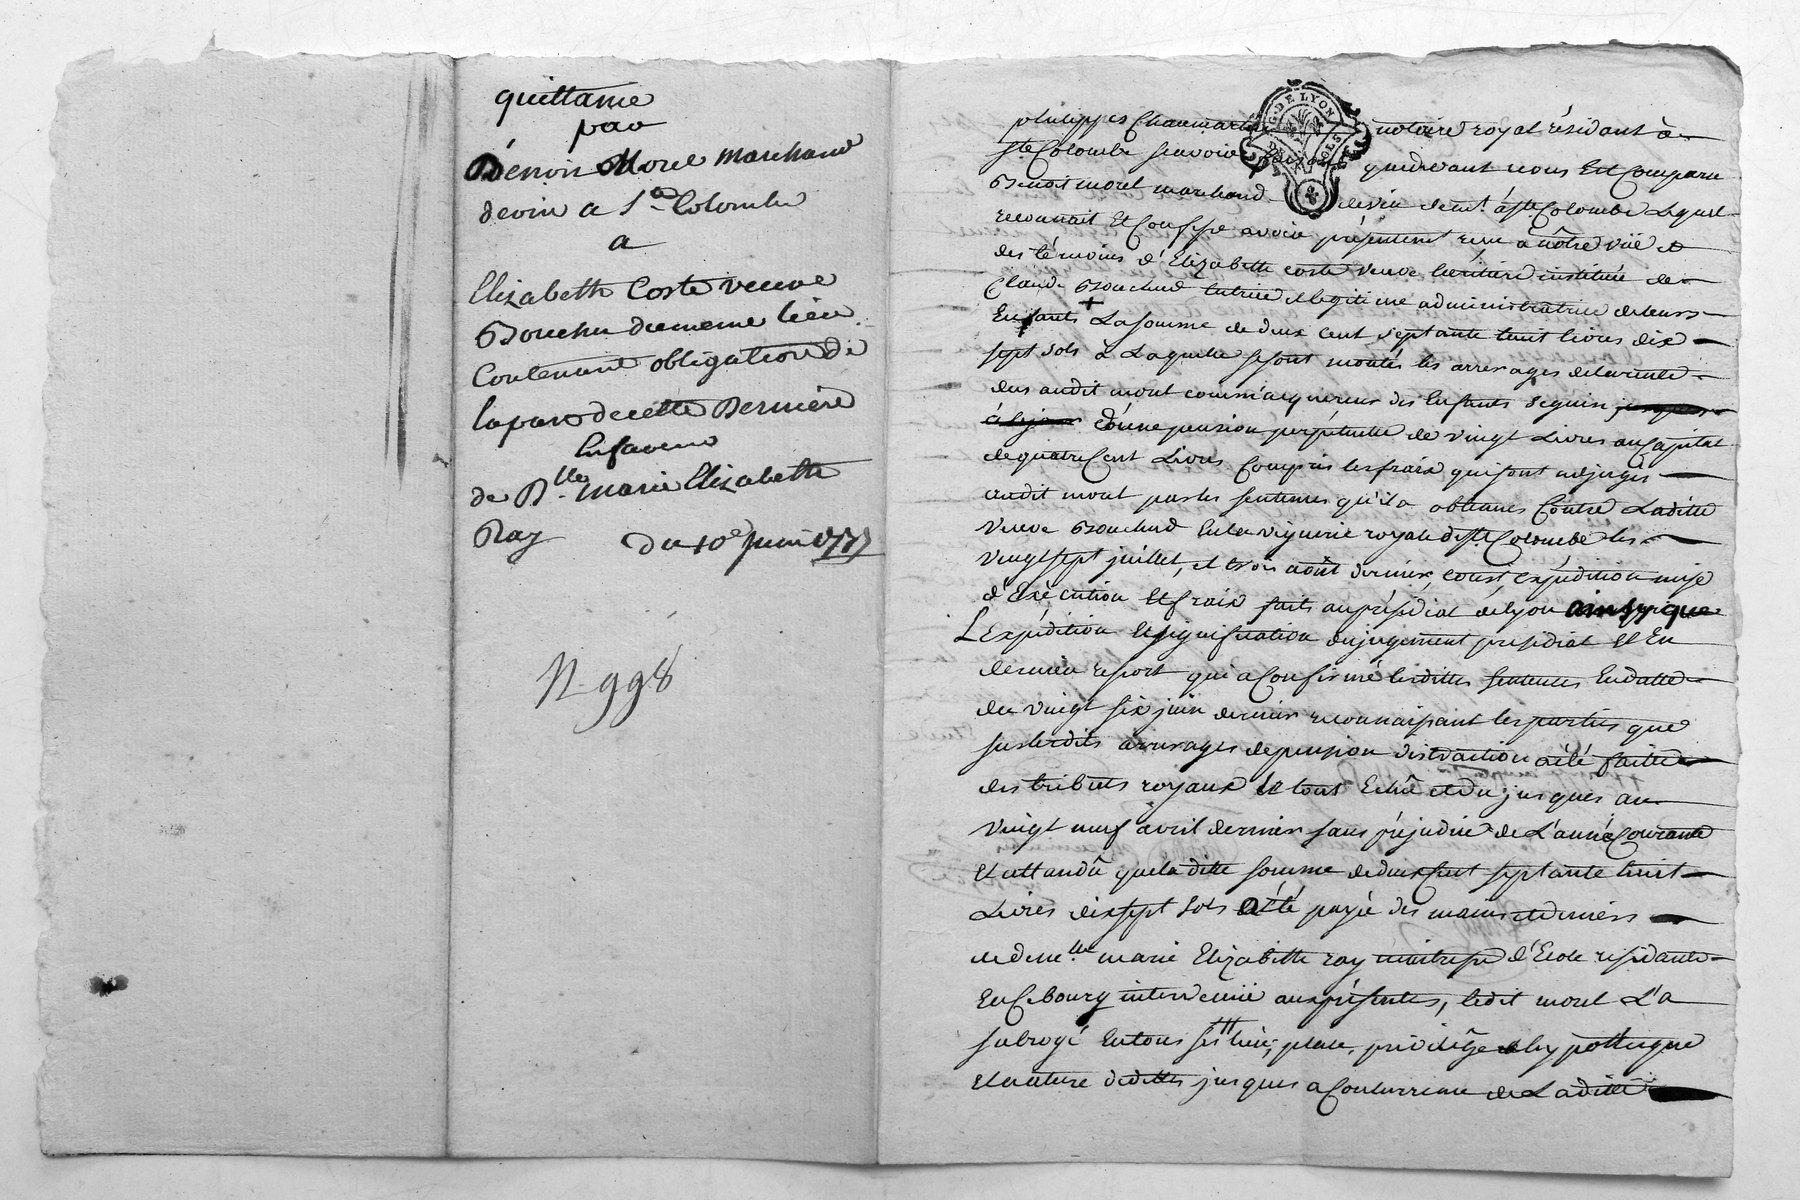 quittance
par
Benoit Morel marchand
devin a Ste Colombe
a
Elizabeth Coste veuve
Bouchu dumeme lieu
Contenant obligation de
lapart decette Derniere
Enfaveur
de Dlle marie Elizabeth
Ray du 10e Juin 1777
N 998
philippes Chaumartin notaire royal résidant à
Ste Colombe scavoir faisons quedevant nous Est Comparu
Benoit morel marchand devin demt. à Ste Colombe Lequel
reconnait Et Confesse avoir présentement reçu a nôtre vüe et
des témoins d'Elizabette coste veuve héritiere instituée de
Claude Bouchud tutrice et legitime administratrice deleurs
Enfants + La somme de deux cent septante huit livres dix
sept sols à Laquelle se sont montés les arrerages delavente
dus audit morel comm'acquereur des Enfants seguin
d'une pension perpétuelle de vingt Livres au Capital
de quatre Cent Livres Compris les frais qui sont adjugés
audit morel par les sentences qu'il a obtenues Contre Laditte
veuve Bouchud En la viguerie royale de Ste Colombe les
vingt sept juillet, et trois août dernier, coust, expédition mise
d'Exécution Et frais faits au présidial de Lyon ainsy que
L'Expédition Et signification du jugement presidial Et En
dernier resort qui a Confirmé lesdittes sentences En datte
du vingt six juin dernier reconnaissant les parties que
sur lesdits arrerages de pension distraction a été faitte
des tributs royaux Le tout Echû et du jusques au
vingt neuf avril dernier sans préjudice de L'année Courante
Et attandû que la ditte somme de deux Cent septante huit
Livres dix sept sols a été payée des mains et deniers
de demlle marie Elizabette ray maitresse d'Ecole residante
En Ce bourg intervenüe aux présentes, ledit morel L'a
subrogé En tous ses lieu, place, privilége et hypotteque
Et nature dedettes jusques a Concurrence de Laditte